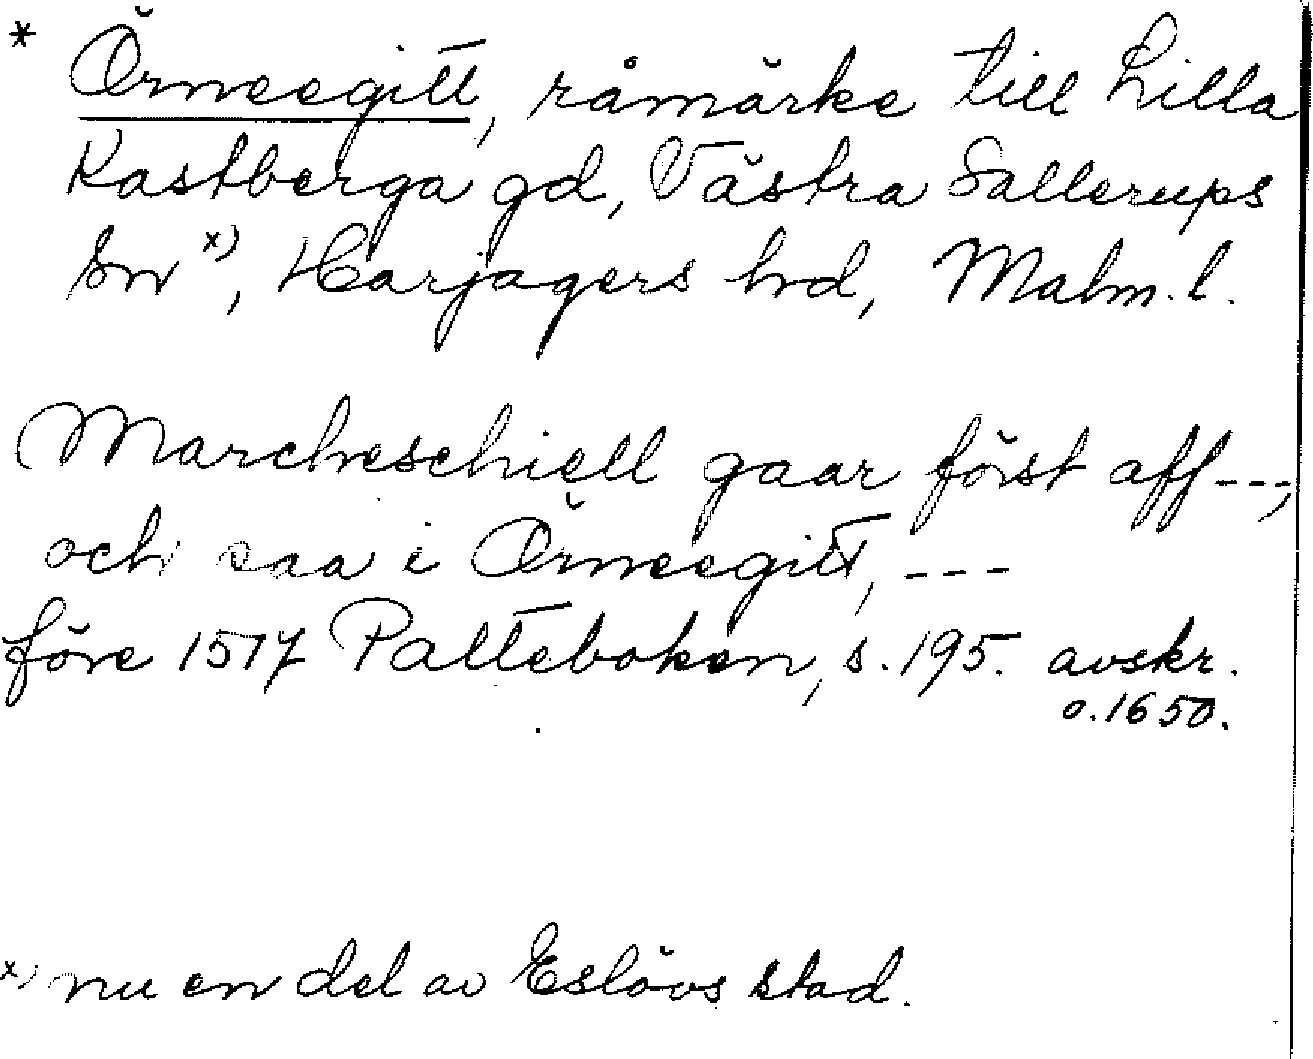 * Örneegitt, råmärke till Lilla
Kastberga gd, Västra Sallerups
sn x), Harjagers hrd, Malm. l.
Marcheschiell gaar först aff ---,
och saa i Örneegitt, ---
före 1517 Palteboken, s. 195. avskr.
o. 1650.
x) nu en del av Eslövs stad.